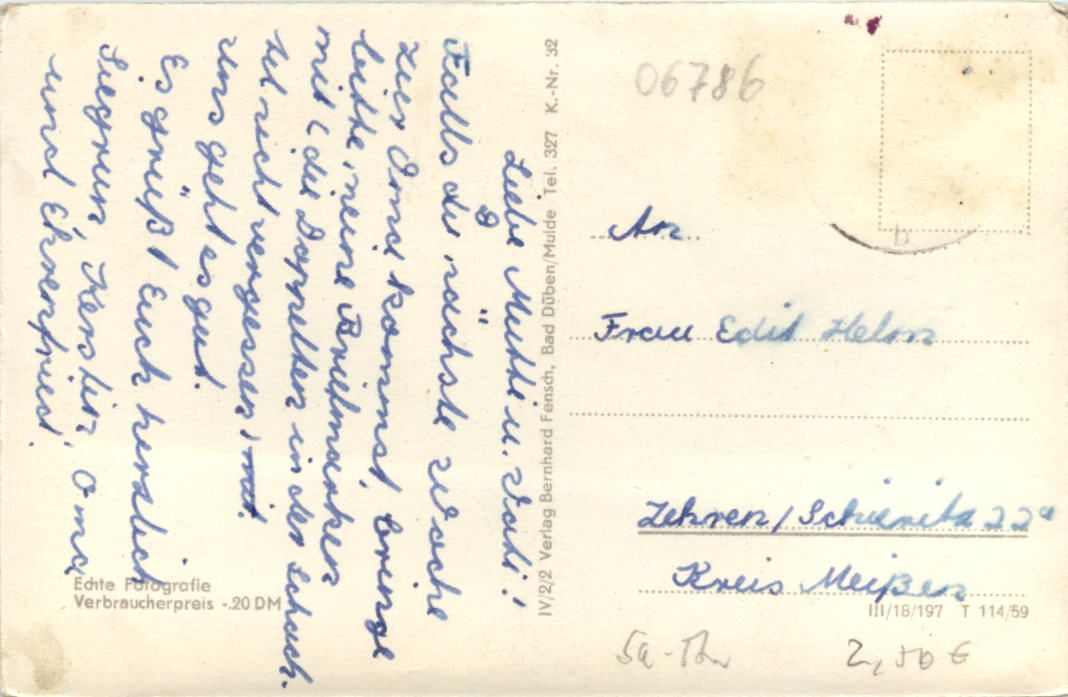 Liebe Mutti u. Vati!
Falls du nächste Woche
zur Oma kommst, bringe
bitte, meine Briefmarken
mit (die Doppelten in der Schach-
tel nicht vergessen) mit.
uns geht es gut.
Es grüßt Euch herzlich
Siegrun, Kerstin, Oma
und Ehrenfried.
Echte Fotografie
Verbraucherpreis -.20 DM
IV/2/2 Verlag Bernhard Fensch, Bad Düben/Mulde Tel. 327 K.-Nr. 32
06786
b
An
Frau Edit Helm
Zehren/Schieritz 22a
Kreis Meißen
III/18/197 T 114/59
2,50 €